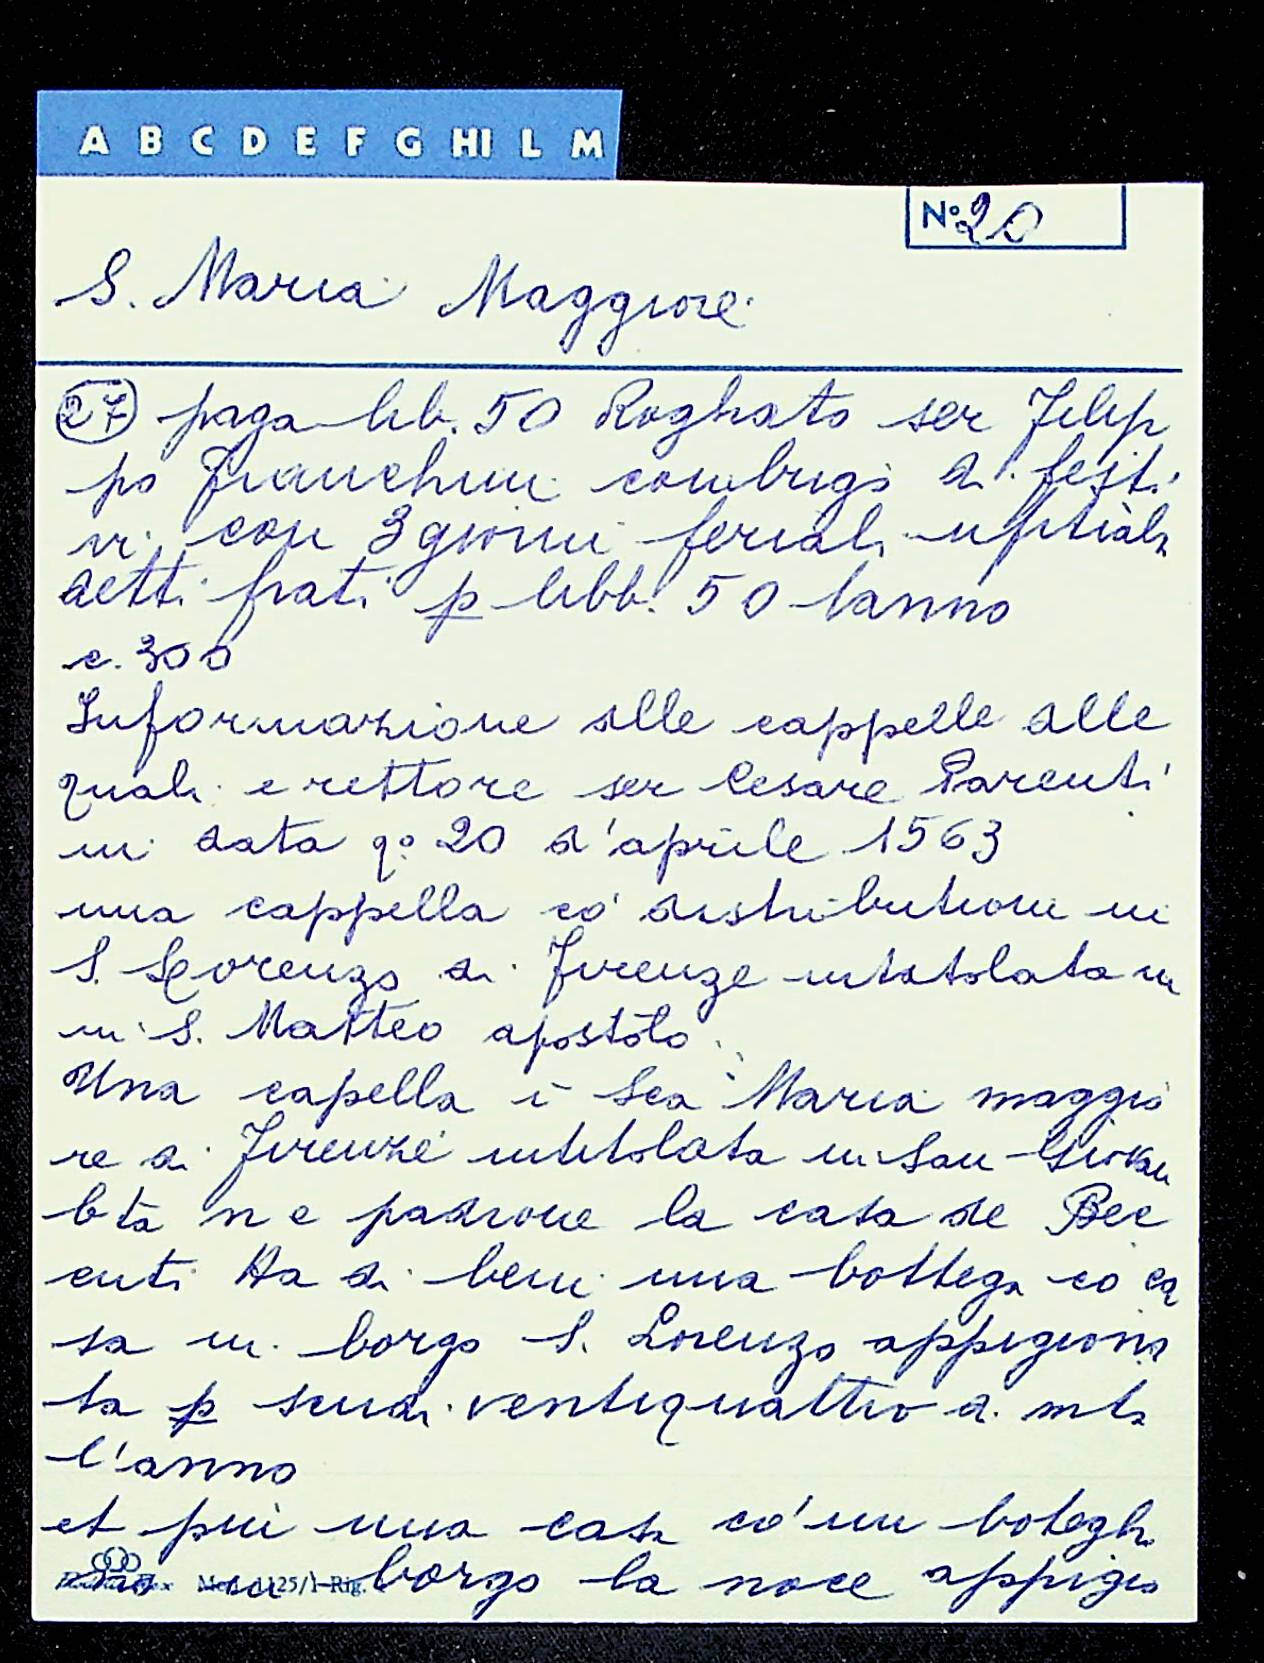 A B C D E F G HI L M
Nº 20
S. Maria Maggiore
27 paga lib. 50 Roghato ser Filip
po Franchini combrigo di festi
vi con 3 giorni feriali
detti frati p libb. 50 lanno
c. 300
Informazione alle cappelle alle
quali e rettore ser Cesare Parenti
in data qº 20 d'aprile 1563
una cappella cō distributioni in
S. Lorenzo di Firenze intitolata in
in S. Matteo apostolo
Una capella ī Sca Maria maggio
re di Firenze intitolata in San Giovan
bta n e padrone la casa de Bec
cuti Ha di beni una bottega co ca
sa in borgo S. Lorenzo appigiona
ta p scudi ventiquattro di mta
l'anno
et più una casa co' un botegh
ino in borgo la noce appigio
Mod. 1125/1 Rig.